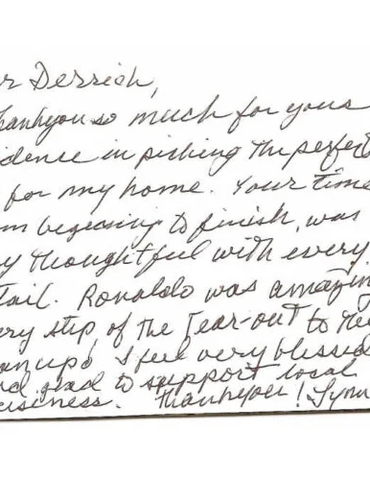 r Derrick,
hankyou so much for your
idence in picking the perfect
for my home. Your time
m beginning to finish, was
y thoughtful with every
tail. Ronaldo was amazin
ery step of the Tear-out to the
ean up! I feel very blessed
nd glad to support local
usiness. Thankyou! Lynn